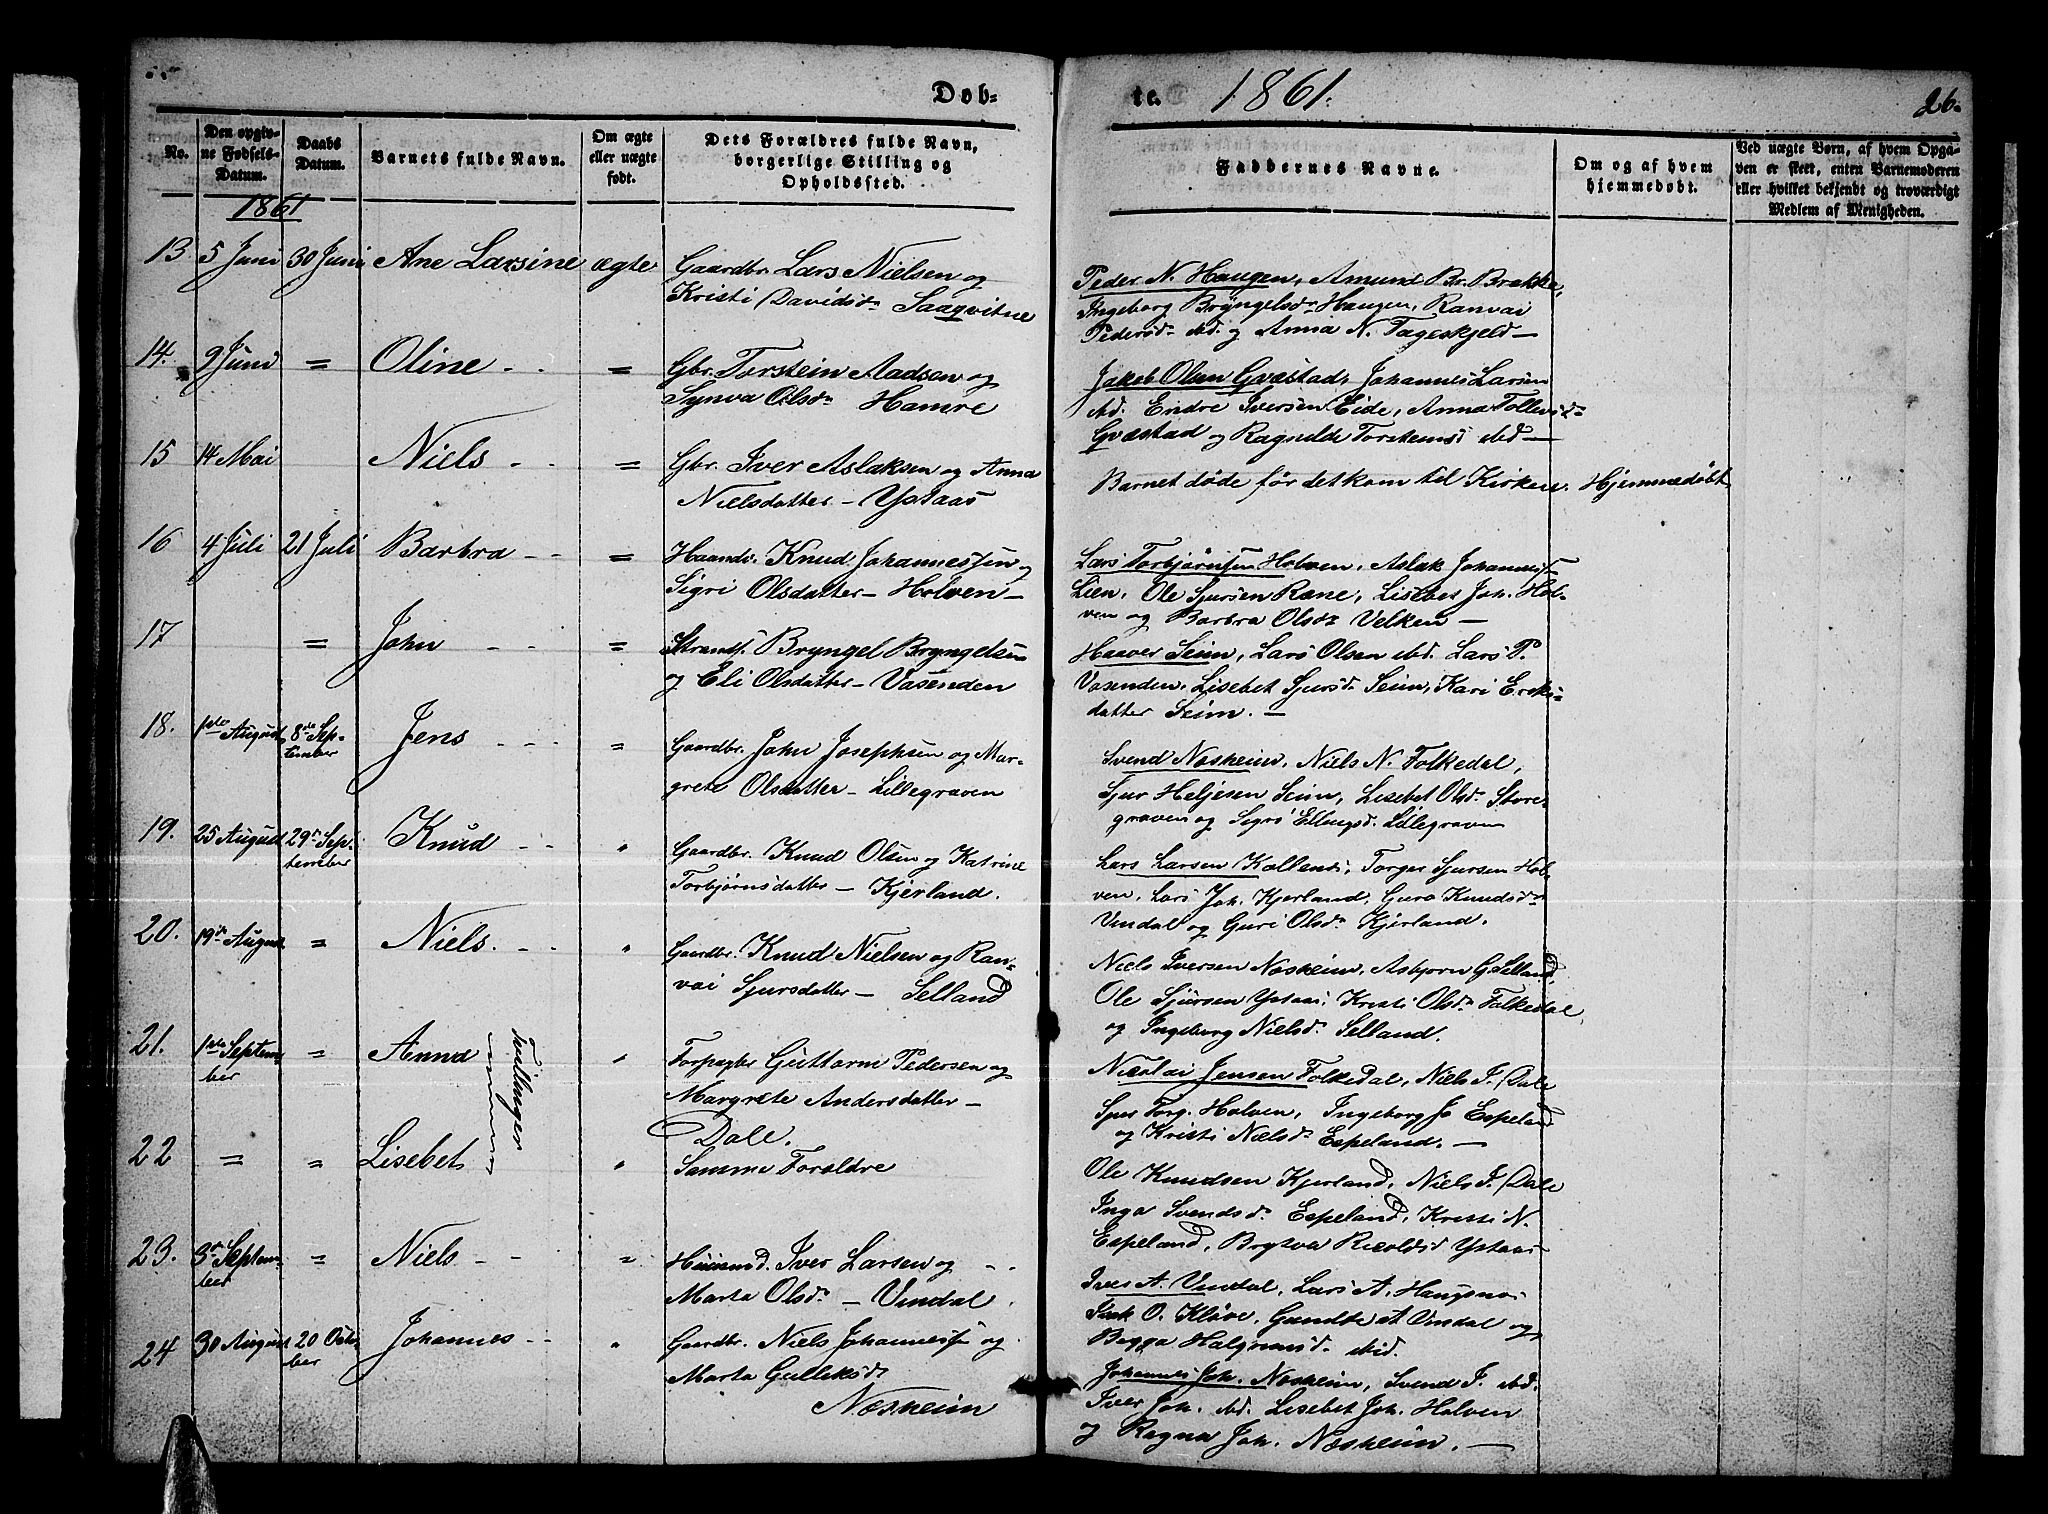 Døb=
te.
1861.
26.
No.
Den opgiv=
ne Fødsels=
Datum.
Daabs
Datum.
Barnets fulde Navn.
Om ægte
eller uægte
født.
Dets Forældres fulde Navn,
borgerlige Stilling og
Opholdssted.
Faddernes Navne.
Om og af hvem
hjemmedøbt.
Ved uægte Børn, af hvem Opga=
ven er skeet, enten Barnemoderen
eller hvilket bekjendt og troværdigt
Medlem af Menigheden.
1861
13 5 Juni 30 Juni Ane Larsine ægte Gaardbr. Lars Nielsen og
Kristi Davidsdr Saaqvitne
Peder N. Haugen, Amund Br. Brakke,
Ingeborg Bryngelsdr Haugen, Ranvai
Pedersdr ibd. og Anna N. Tageskjeld —
14. 9 Juni = Oline - - = Gbr. Torstein Aadsen og
Synva Olsdr Hamre
Jakob Olsen Gvæstad, Johannes Larsen
ibd. Endre Iversen Eide, Anna Tollevsd.
Gvæstad og Ragnilde Torsteinsd ibd —
15 14 Mai Niels - - = Gbr. Iver Aslaksen og Anna
Nielsdatter - Ystaas
Barnet døde før det kom til Kirken. Hjemmedøbt
16 4 Juli 21 Juli Barbra - - = Haandv. Knud Johannessen og
Sigri Olsdatter - Holven -
Lars Torbjørnsen Holven, Aslak Johannes
Lien, Ole Sjursen Røne, Lisebet Joh. Hol-
ven og Barbra Olsdr Velken —
17 = John - - = Strands. Bryngel Bryngelsen
og Eli Olsdatter - Vasenden
Haaver Seim, Lars Olsen ibd. Lars P.
Vasenden, Lisebet Sjursd. Seim, Kari Eriks-
datter Seim. —
18. 1ste August 8de Sep-
tember Jens - - - = Gaardbr. John Josephsen og Mar-
grete Olsdatter - Lillegraven
Svend Næsheim, Niels N. Folkedal,
Sjur Heljesen Seim, Lisebet Olsdr Store-
graven og Sigri Ellingsd. Lillegraven
19. 25 August 29de Sep-
tember Knud - - " Gaardbr. Knud Olsen og Katrine
Torbjørnsdatter - Kjerland.
Lars Larsen Kolland, Torger Sjursen Hol-
ven, Lars Joh. Kjerland, Guro Knudsdr
Vindal og Guri Olsdr Kjerland.
20. 19de August = Niels. - - " Gaardbr. Knud Nielsen og Ran-
vai Sjursdatter - Selland
Niels Iversen Næsheim, Asbjørn G. Selland,
Ole Sjursen Ystaas, Kristi Olsdr Folkedal,
og Ingeborg Nielsdr Selland.
21. 1ste Septem-
ber = Anna " Forpagter Guttorm Pedersen og
Margrete Andersdatter -
Dale.
Tvillinger
Nicolai Jensen Folkedal, Niels J. Dale
Sjur Torg. Holven, Ingeborg Jo Espeland
og Kristi Nielsdr Espeland. —
22 = = Lisebet " Samme Forældre
Ole Knudsen Kjerland, Niels J. Dale
Inga Svendsdr Espeland, Kristi N.
Espeland, Brytva Ricoldsd Ystaas
23. 3de Septem-
ber " Niels - - " Huusmd. Iver Larsen og - -
Marta Olsdr - Vindal
Iver A. Vindal, Lars A. Haugsnæs
Isak O. Kløve, Gunilde A Vindal og
Begga Halgrimsdr ibid.
24 30 August 20 Octo-
ber Johannes - - " Gaardbr. Niels Johannessen og
Marta Gulleksdr
Næsheim
Johannes Joh. Næsheim, Svend J. ibd.
Iver Joh. ibd. Lisebet Joh. Holven
og Ragna Joh. Næsheim. —